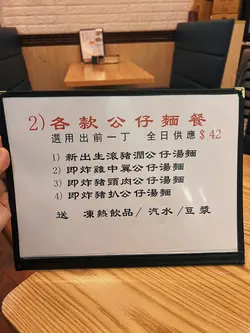 2) 各款公仔麵餐
選用出前一丁 全日供應 $42
1) 新出生滾豬潤公仔湯麵
2) 即炸雞中翼公仔湯麵
3) 即炸豬頸肉公仔湯麵
4) 即炸豬扒公仔湯麵
送 凍熱飲品/汽水/豆漿